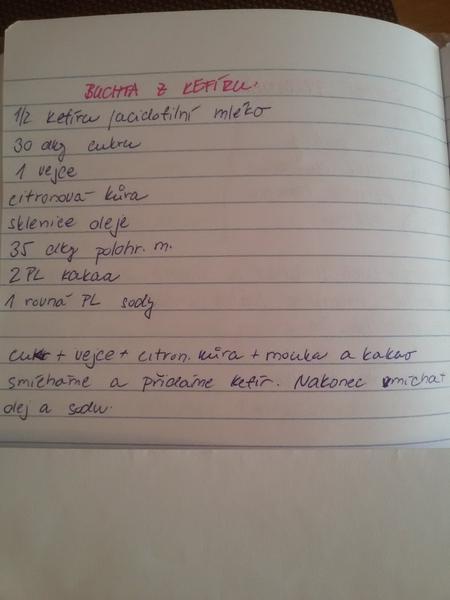 BUCHTA Z KEFÍRU.
1/2 kefíru /acidofilní mléko
30 dkg cukru
1 vejce
citronová kůra
sklenice oleje
35 dkg polohr. m.
2 PL kakaa
1 rovná PL sody
cukr + vejce + citron. kůra + mouka a kakao
smícháme a přidáme kefír. Nakonec vmíchat
olej a sodu.